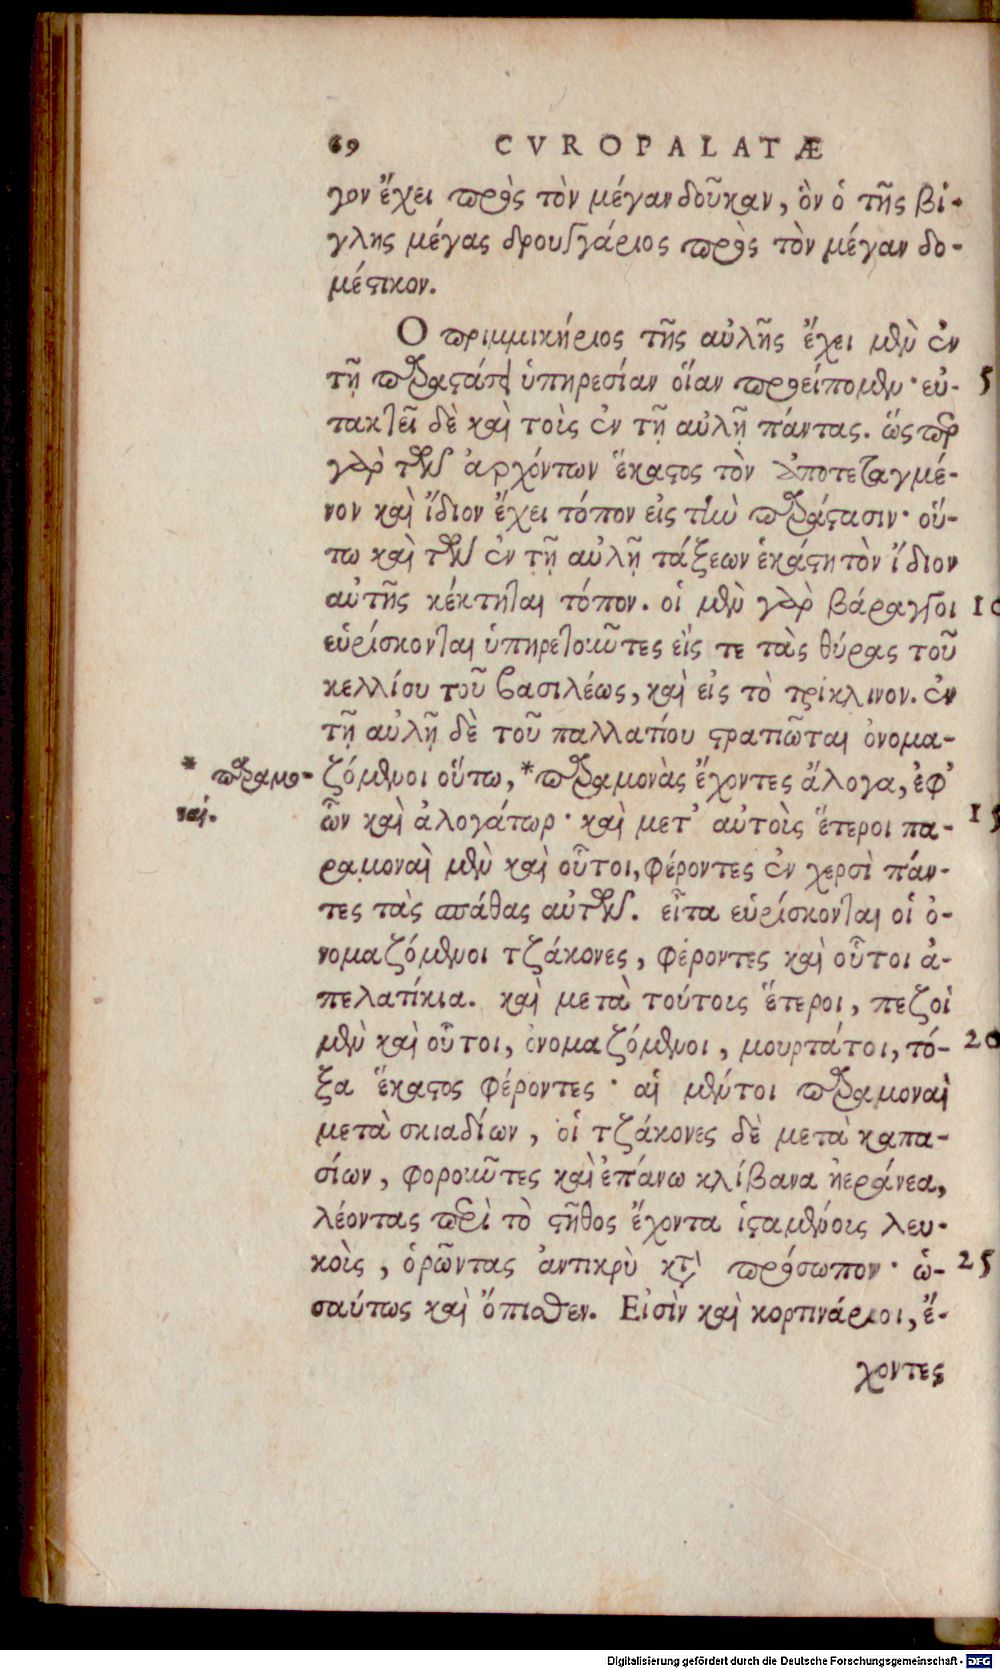 69 CVROPALATÆ
γον ἔχει πρὸς τὸν μέγαν δοῦκαν, ὃν ὁ τῆς βί-
γλης μέγας δρουγγάριος πρὸς τὸν μέγαν δο-
μέστικον.
Ο πριμμικήριος τῆς αὐλῆς ἔχει μὲν ἐν
τῇ παραστάσει ὑπηρεσίαν οἵαν προείπομεν· εὐ- 5
τακτεῖ δὲ καὶ τοὶς ἐν τῇ αὐλῇ πάντας. ὥσπερ
γὰρ τῶν ἀρχόντων ἕκαστος τὸν ἀποτεταγμέ-
νον καὶ ἴδιον ἔχει τόπον εἰς τὴν παράστασιν· οὕ-
τω καὶ τῶν ἐν τῇ αὐλῇ τάξεων ἑκάστη τὸν ἴδιον
αὐτῆς κέκτηται τόπον. οἱ μὲν γὰρ βάραγγοι 10
εὑρίσκονται ὑπηρετοῦντες εἴς τε τὰς θύρας τοῦ
κελλίου τοῦ βασιλέως, καὶ εἰς τὸ τρίκλινον. ἐν
τῇ αὐλῇ δὲ τοῦ παλλατίου στρατιῶται ὀνομα-
ζόμενοι οὕτω, *παραμονὰς ἔχοντες ἄλογα, ἐφ’
* παραμο-
ναί.
ὧν καὶ ἀλογάτωρ· καὶ μετ’ αὐτοὶς ἕτεροι πα- 15
ραμοναὶ μὲν καὶ οὗτοι, φέροντες ἐν χερσὶ πάν-
τες τὰς σπάθας αὐτῶν. εἶτα εὑρίσκονται οἱ ὀ-
νομαζόμενοι τζάκονες, φέροντες καὶ οὗτοι ἀ-
πελατίκια. καὶ μετὰ τούτοις ἕτεροι, πεζοὶ
μὲν καὶ οὗτοι, ὀνομαζόμενοι, μουρτάτοι, τό- 20
ξα ἕκαστος φέροντες· αἱ μέντοι παραμοναὶ
μετὰ σκιαδίων, οἱ τζάκονες δὲ μετὰ καπα-
σίων, φοροῦντες καὶ ἐπάνω κλίβανα ἠεράνεα,
λέοντας περὶ τὸ στῆθος ἔχοντα ἱσταμένοις λευ-
κοὶς, ὁρῶντας ἀντικρὺ κτ πρόσωπον· ὡ- 25
σαύτως καὶ ὄπισθεν. Εἰσὶν καὶ κορτινάριοι, ἔ-
χοντες
Digitalisierung gefördert durch die Deutsche Forschungsgemeinschaft - DFG